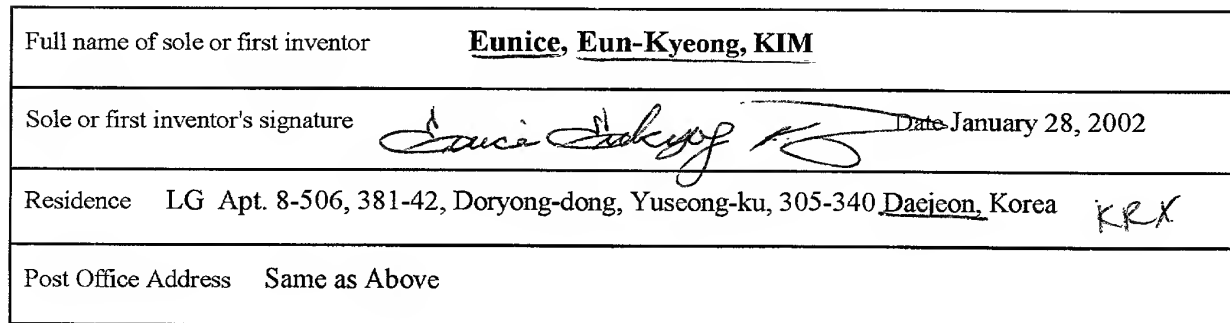 Full name of sole or first inventor Eunice, Eun-Kyeong, KIM
Sole or first inventor's signature Date January 28, 2002
Residence LG Apt. 8-506, 381-42, Doryong-dong, Yuseong-ku, 305-340 Daejeon, Korea KRX
Post Office Address Same as Above